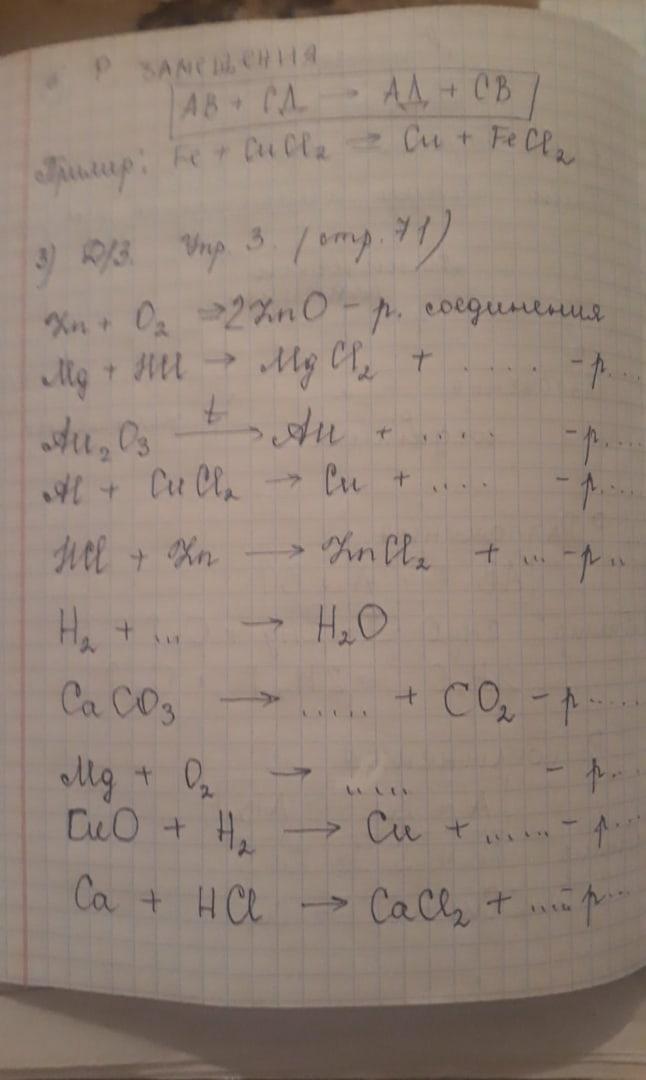 Р ЗАМЕЩЕНИЯ
АВ + СД → АД + СВ
Пример: Fe + CuCl₂ ⇒ Cu + FeCl₂
3) Д/З. Упр. 3. (стр. 71)
Zn + O₂ ⇒ 2ZnO – р. соединения
Mg + HCl → MgCl₂ + ..... – р...
Au₂O₃ t→ Au + ..... – р....
Al + CuCl₂ → Cu + ..... – р....
HCl + Zn → ZnCl₂ + ... – р..
H₂ + ... → H₂O
CaCO₃ → ..... + CO₂ – р.....
Mg + O₂ → ..... – р...
CuO + H₂ → Cu + ...... – р...
Ca + HCl → CaCl₂ + .... – р...